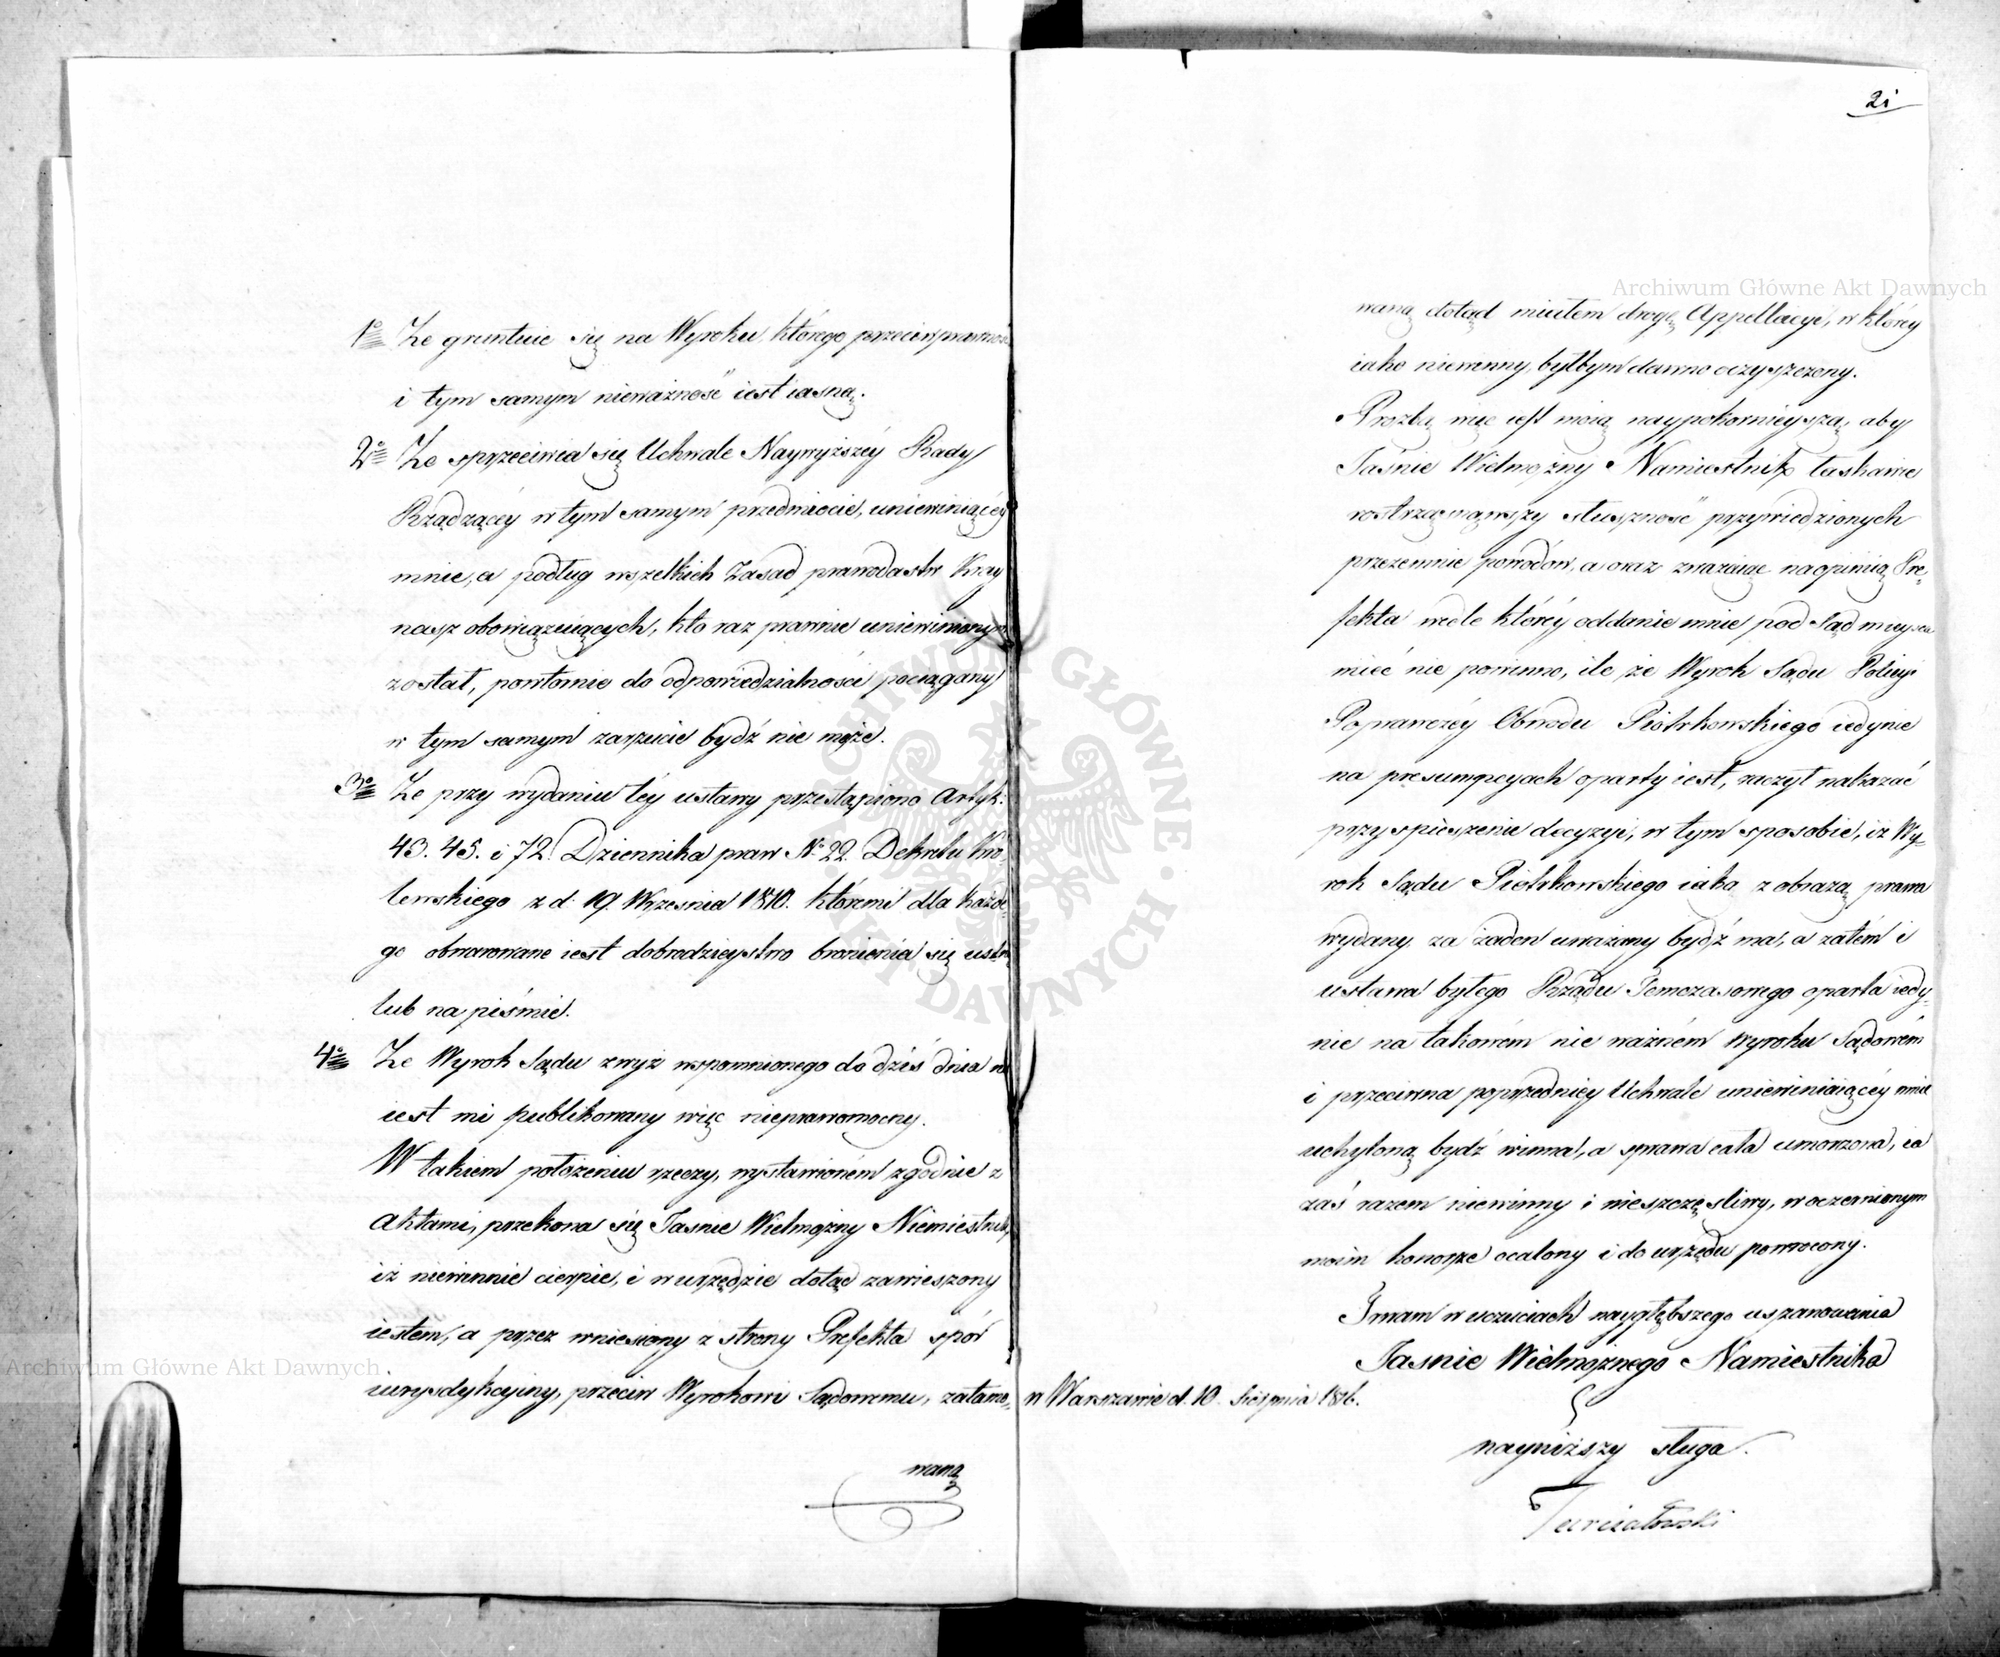 1º Że gruntuie się na Wyroku, którego przeciwprawność
i tym samym nieważność iest iasna.
2º Że sprzeciwia się Uchwale Naywyższéy Rady
Rządzącéy w tym samym przedmiocie, uniewiniaiącéy
mnie, a podług wszelkich Zasad prawodastw Kray
nasz obowiązuiących, kto raz prawnie uniewinionym
został, powtórnie do odpowiedzialności pociągany
w tym samym zarzucie bydź nie może.
3º Że przy wydaniu téy ustawy przestąpiono Artyk:
43. 45. i 72. Dziennika praw Nº 22. Dekretu Kró-
lewskiego z d: 19. Września 1810. któremi dla każde-
go obwarowane iest dobrodzieystwo bronienia się ustnie
lub na piśmie.
4º Że Wyrok Sądu zwyż wspomnionego do dziś dnia nie
iest mi publikowany więc nieprawomocny.
W takiem położeniu rzeczy, wystawioném zgodnie z
Aktami, przekona się Jaśnie Wielmożny Niemiestnik,
iż niewinnie cierpie, i w urzędzie dotąd zawieszony
iestem, a przez wniesiony z strony Prefekta spór
iurysdykcyiny, przeciw Wyrokowi Sądowemu, zatamo-
waną
2i
waną dotąd miałem drogę Appellacyi, w któréy
iako niewinny, byłbym dawno oczyszczony.
Proźbą więc iest moią naypokornieyszą, aby
Jaśnie Wielmożny Namiestnik łaskawie
rostrząsnąwszy słuszność przywiedzionych
przezemnie powodów, a oraz zważaiąc na opinią Pre-
fekta wedle któréy oddanie mnie pod Sąd mieysca
mieć nie powinno, ile że Wyrok Sądu Policyi
Poprawczéy Obwodu Piotrkowskiego iedynie
na presumpcyach oparty iest, raczył nakazać
przyspieszenie decyzyi, w tym sposobie, iż Wy-
rok Sądu Piotrkowskiego iako z obrazą prawa
wydany za żaden uważany bydź ma, a zatém i
ustawa byłego Rządu Temczasowego oparta iedy-
nie na takowém nie ważném wyroku Sądowém
i przeciwna poprzedniey Uchwale uniewiniaiącéy mnie
uchyloną bydź winna, a sprawa cała umorzona, ia
zaś razem niewinny i nieszczęśliwy, w oczernionym
moim honorze ocalony i do urzędu powrócony.
Trwam w uczuciach naygłębszego uszanowania
Jaśnie Wielmożnego Namiestnika
w Warszawie d. 10. Sierpnia 1816.
nayniższy sługa.
Archiwum Główne Akt Dawnych
Archiwum Główne Akt Dawnych
ARCHIWUM GŁÓWNE AKT DAWNYCH